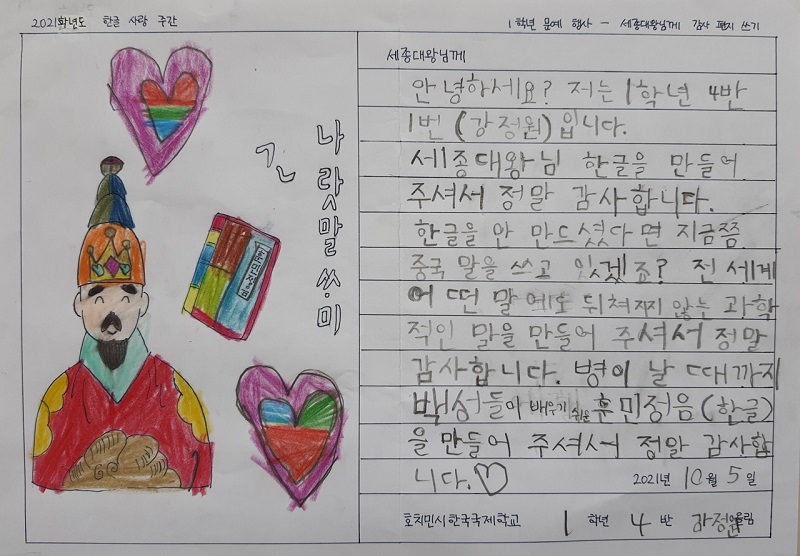 2021학년도 한글 사랑 주간
1학년 문예 행사 - 세종대왕님께 감사 편지 쓰기
ㄱㄴ
나랏말쏭미
훈민정음
세종대왕님께
안녕하세요? 저는 1학년 4반
1번 (강정원)입니다.
세종대왕님 한글을 만들어
주셔서 정말 감사합니다.
한글을 안 만드셨다면 지금쯤
중국 말을 쓰고 있겠죠? 전 세계
어떤 말에도 뒤쳐지지 않는 과학
적인 말을 만들어 주셔서 정말
감사합니다. 병이 날 때까지
백성들이 배우기 쉬운 훈민정음(한글)
을 만들어 주셔서 정말 감사합
니다.♡
2021년 10월 5일
호치민시한국국제학교 1 학년 4 반 강정원 올림